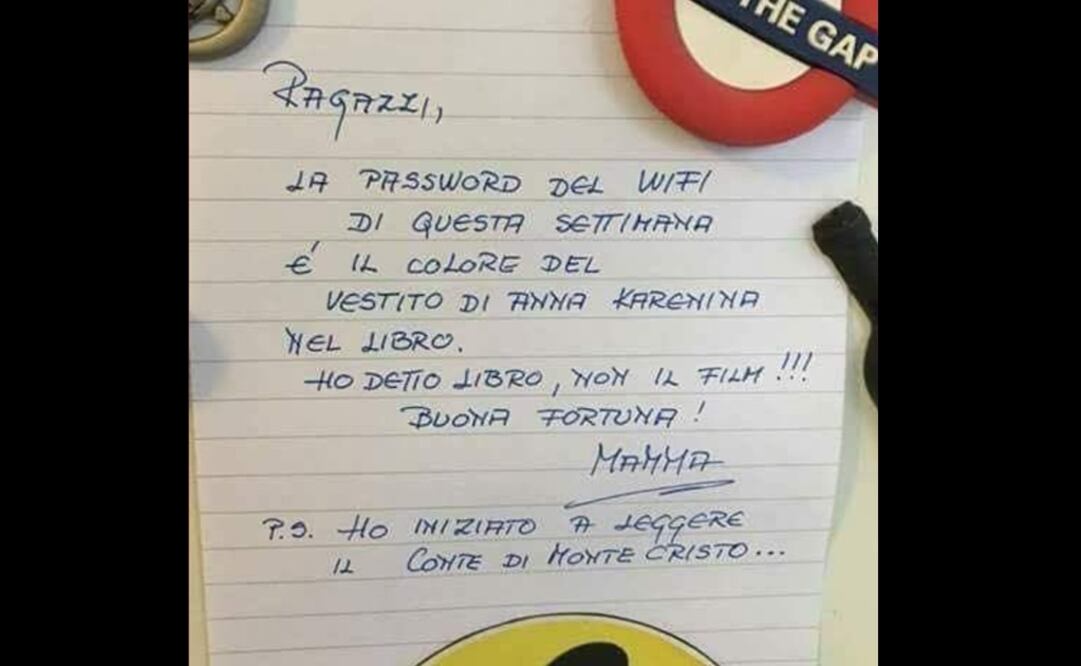 THE GAP
Ragazzi,
LA PASSWORD DEL WIFI
DI QUESTA SETTIMANA
É IL COLORE DEL
VESTITO DI ANNA KARENINA
NEL LIBRO.
HO DETTO LIBRO, NON IL FILM!!!
BUONA FORTUNA!
MAMMA
P.S. HO INIZIATO A LEGGERE
IL CONTE DI MONTECRISTO...